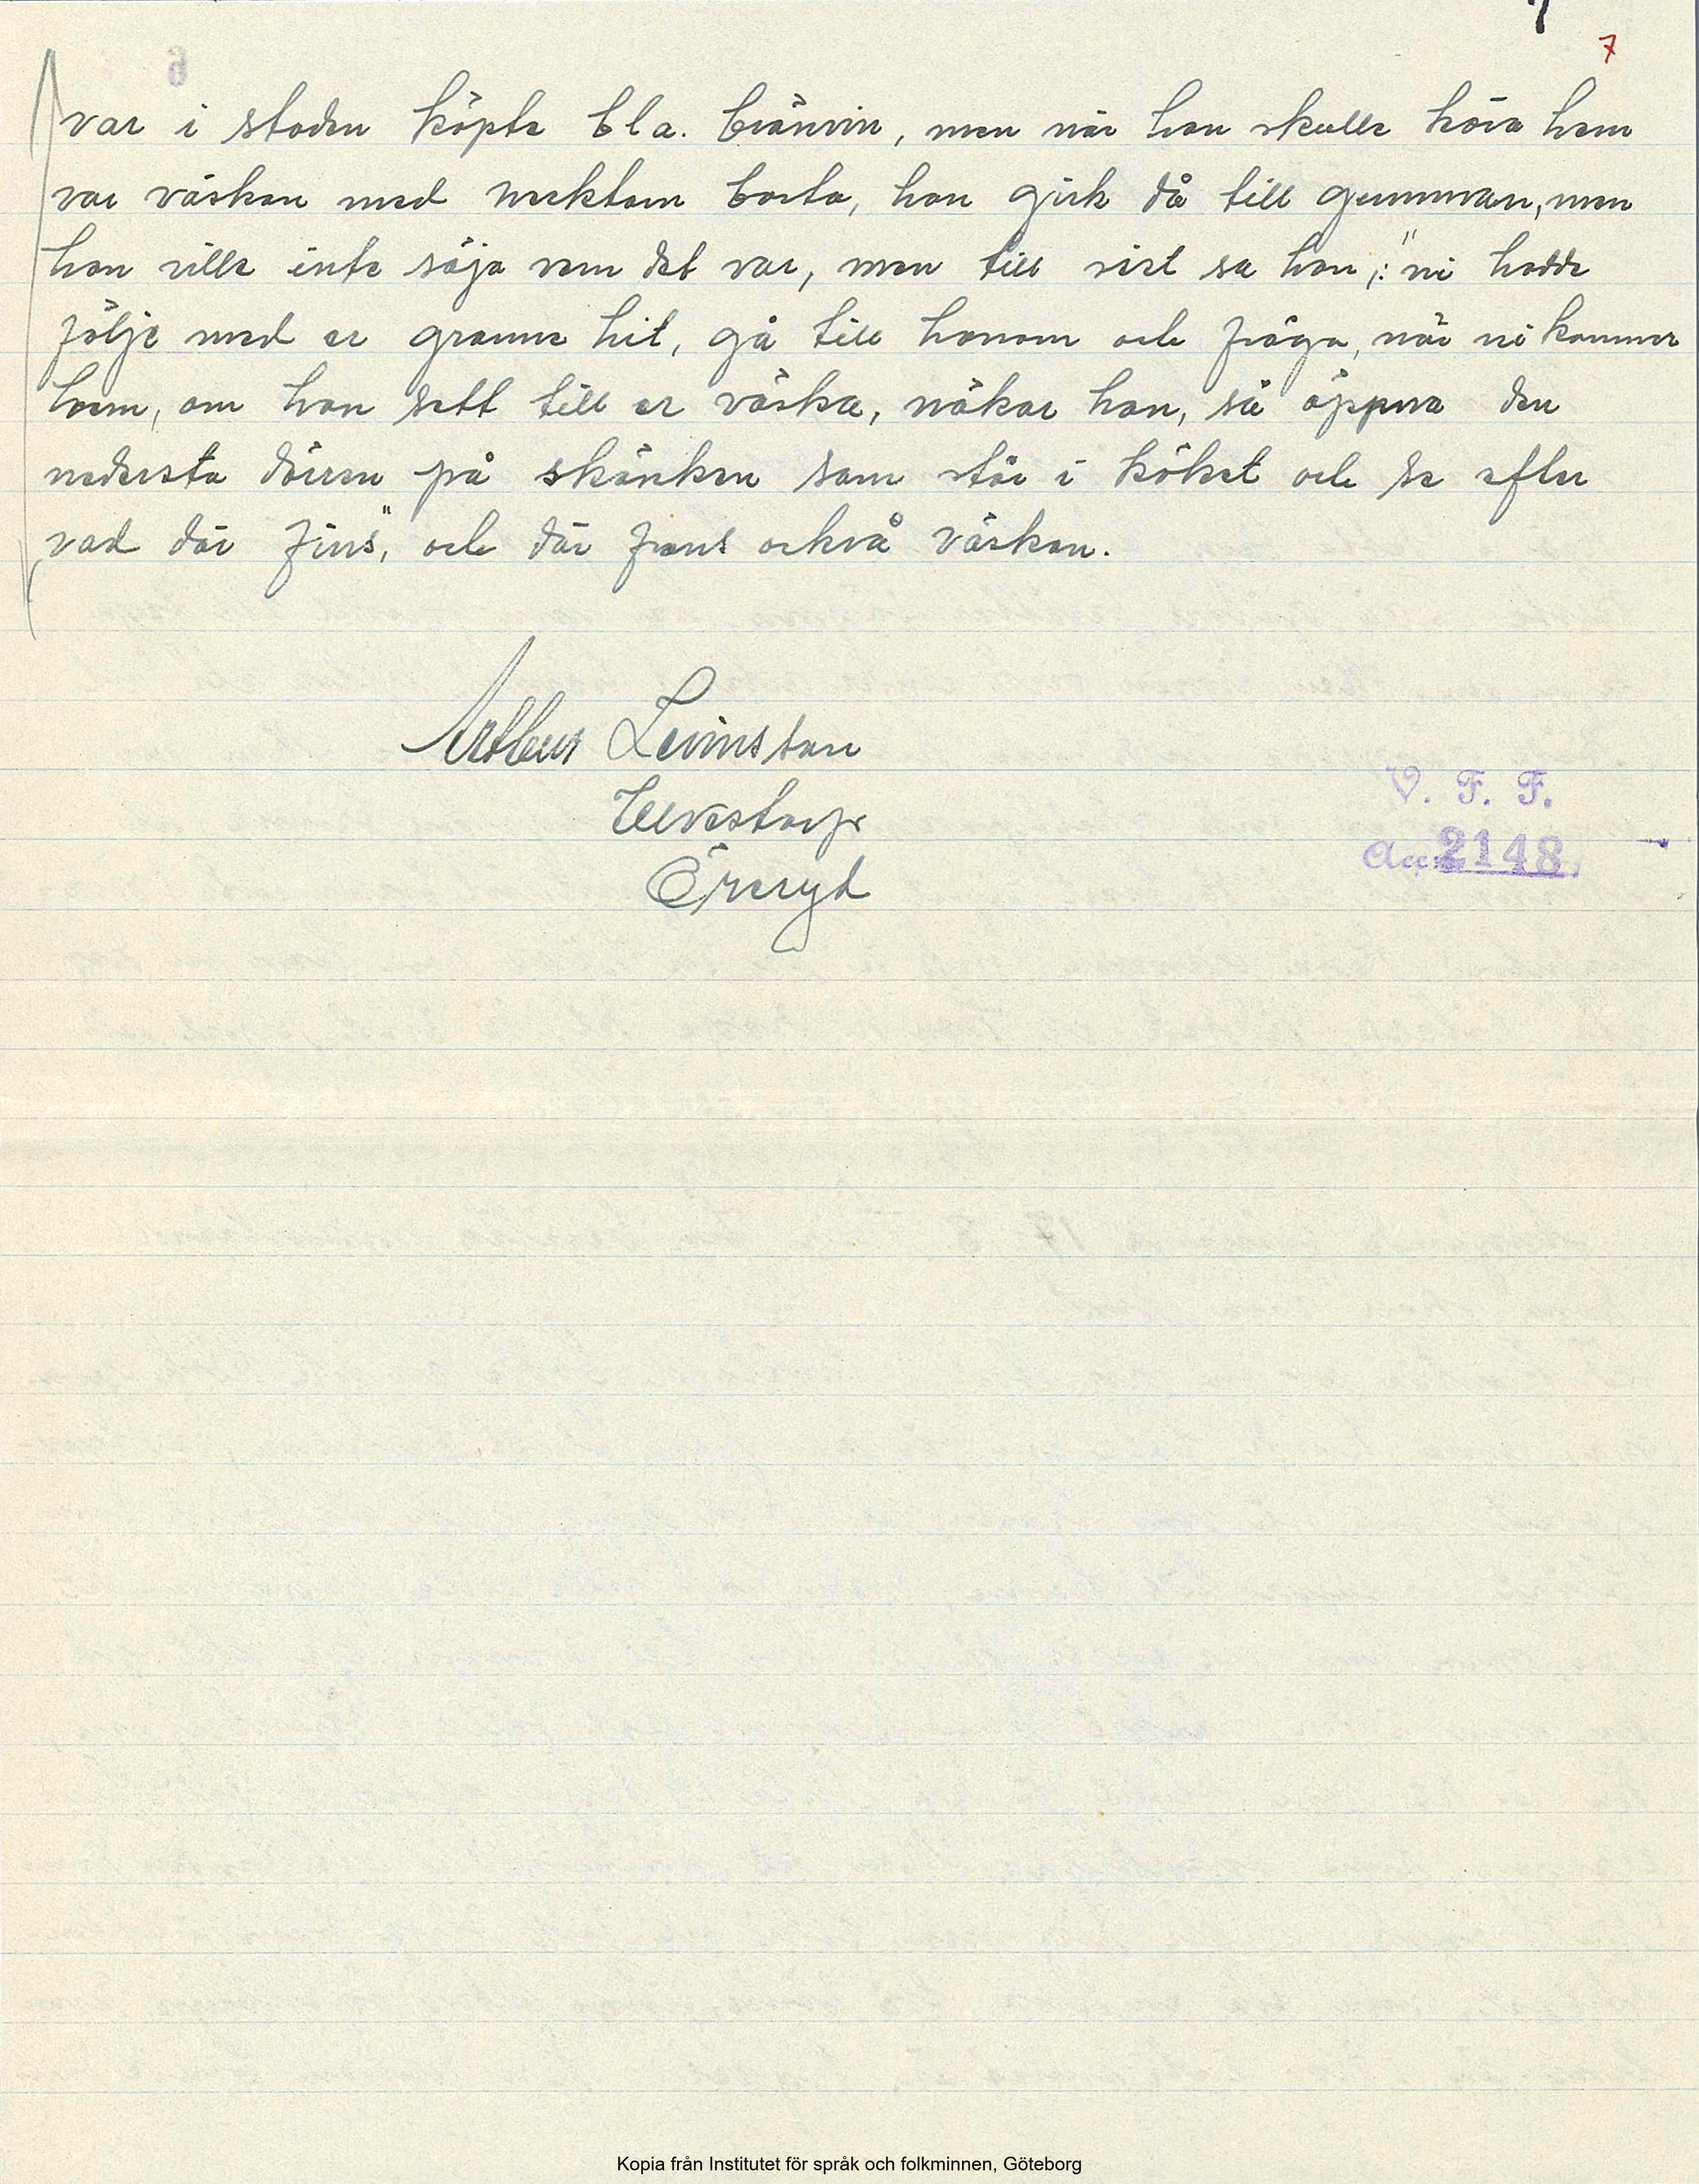 7
7
var i staden köpte bl a. bränvin, men när han skulle köra hem
var väskan med nektarn borta, han gick då till gumman, men
hon ville inte säja vem det var, men till sist sa hon,: "ni hadde
följe med er granne hit, gå till honom och fråga, när ni kommer
hem, om han sett till er väska, näkar han, så öppna den
nedersta dörren på skänken som står i köket och se efter
vad där fins", och där fans också väskan.
Arthur Levinsson
Ulvestorp
Öreryd
V. F. F.
Acc. 2148.
Kopia från Institutet för språk och folkminnen, Göteborg